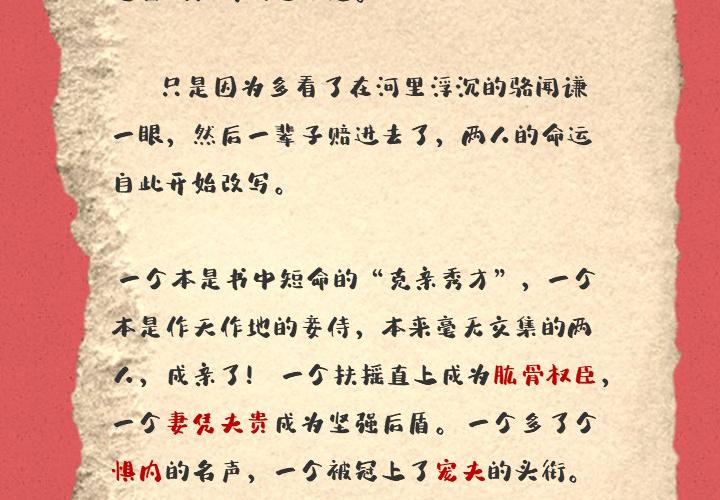 只是因为多看了在河里浮沉的骆闻谦
一眼，然后一辈子赔进去了，两人的命运
自此开始改写。
一个本是书中短命的“克亲秀才”，一个
本是作天作地的妾侍，本来毫无交集的两
人，成亲了！ 一个扶摇直上成为肱骨权臣，
一个妻凭夫贵成为坚强后盾。一个多了个
惧内的名声，一个被冠上了宠夫的头衔。